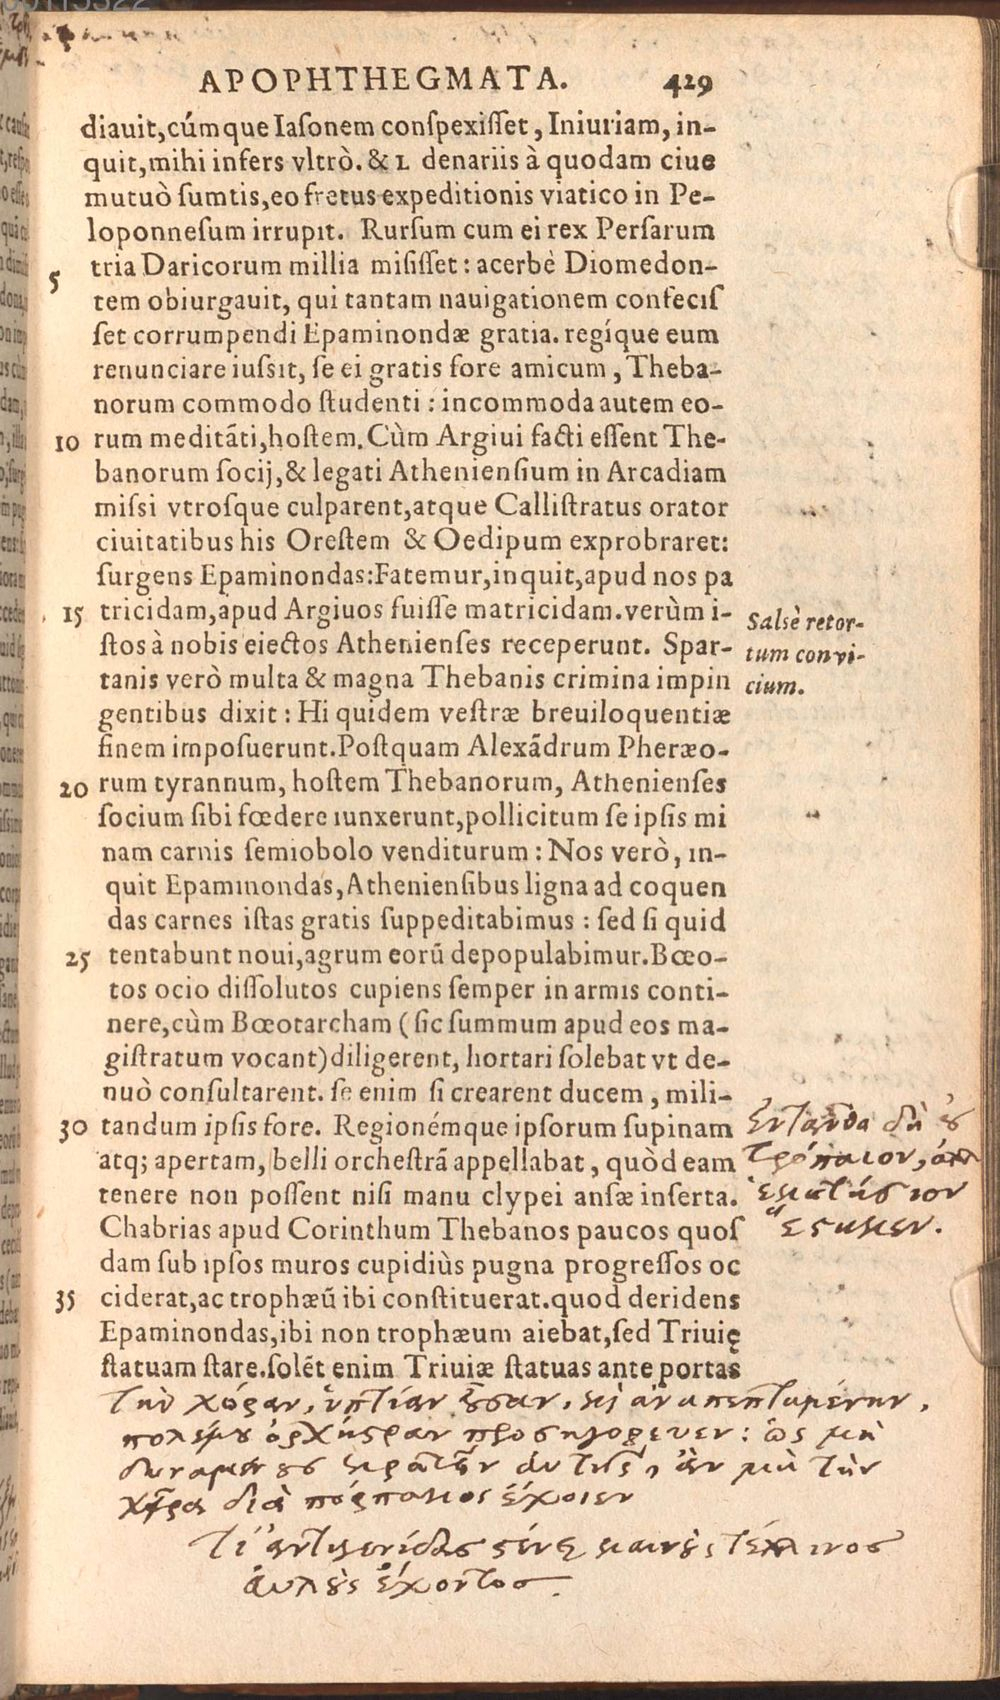 APOPHTHEGMATA. 429
diauit,cúmque Iaſonem conſpexiſſet, Iniuriam, in-
quit,mihi infers vltrò. & L denariis à quodam ciue
mutuò ſumtis,eo fretus expeditionis viatico in Pe-
loponneſum irrupit. Rurſum cum ei rex Perſarum
5 tria Daricorum millia miſiſſet: acerbè Diomedon-
tem obiurgauit, qui tantam nauigationem confeciſ
ſet corrumpendi Epaminondæ gratia. regíque eum
renunciare iuſsit, ſe ei gratis fore amicum, Theba-
norum commodo ſtudenti: incommoda autem eo-
10 rum meditãti,hoſtem. Cùm Argiui facti eſſent The-
banorum ſocij,& legati Athenienſium in Arcadiam
miſsi vtroſque culparent,atque Calliſtratus orator
ciuitatibus his Oreſtem & Oedipum exprobraret:
ſurgens Epaminondas:Fatemur,inquit,apud nos pa
15 tricidam,apud Argiuos fuiſſe matricidam.verùm i-
ſtos à nobis eiectos Athenienſes receperunt. Spar-
tanis verò multa & magna Thebanis crimina impin
gentibus dixit: Hi quidem veſtræ breuiloquentiæ
finem impoſuerunt.Poſtquam Alexãdrum Pheræo-
20 rum tyrannum, hoſtem Thebanorum, Athenienſes
ſocium ſibi fœdere iunxerunt,pollicitum ſe ipſis mi
nam carnis ſemiobolo venditurum: Nos verò, in-
quit Epaminondas,Athenienſibus ligna ad coquen
das carnes iſtas gratis ſuppeditabimus: ſed ſi quid
25 tentabunt noui,agrum eorũ depopulabimur.Bœo-
tos ocio diſſolutos cupiens ſemper in armis conti-
nere,cùm Bœotarcham (ſic ſummum apud eos ma-
giſtratum vocant)diligerent, hortari ſolebat vt de-
nuò conſultarent. ſe enim ſi crearent ducem, mili-
30 tandum ipſis fore. Regionémque ipſorum ſupinam
atq; apertam, belli orcheſtrã appellabat, quòd eam
tenere non poſſent niſi manu clypei anſæ inſerta.
Chabrias apud Corinthum Thebanos paucos quoſ
dam ſub ipſos muros cupidiùs pugna progreſſos oc
35 ciderat,ac trophæũ ibi conſtituerat.quod deridens
Epaminondas,ibi non trophæum aiebat,ſed Triuię
ſtatuam ſtare.ſolẽt enim Triuiæ ſtatuas ante portas
Salsè retor-
tum convi-
cium.
Ἐνταῦθα δεῖ οὐ
τρόπαιον, ἀλλ'
ἑκατήσιον
ἑστάναι.
τὴν χώραν, ὑπτίαν οὖσαν, καὶ ἀναπεπταμένην,
πολέμου ὀρχήστραν προσηγόρευεν: ὡς μὴ
δυναμένους κρατεῖν αὐτῆς, ἂν μὴ τὴν
χεῖρα διὰ πόρπακος ἔχοιεν
καινοὺς
αὐλοὺς ἔχοντος.